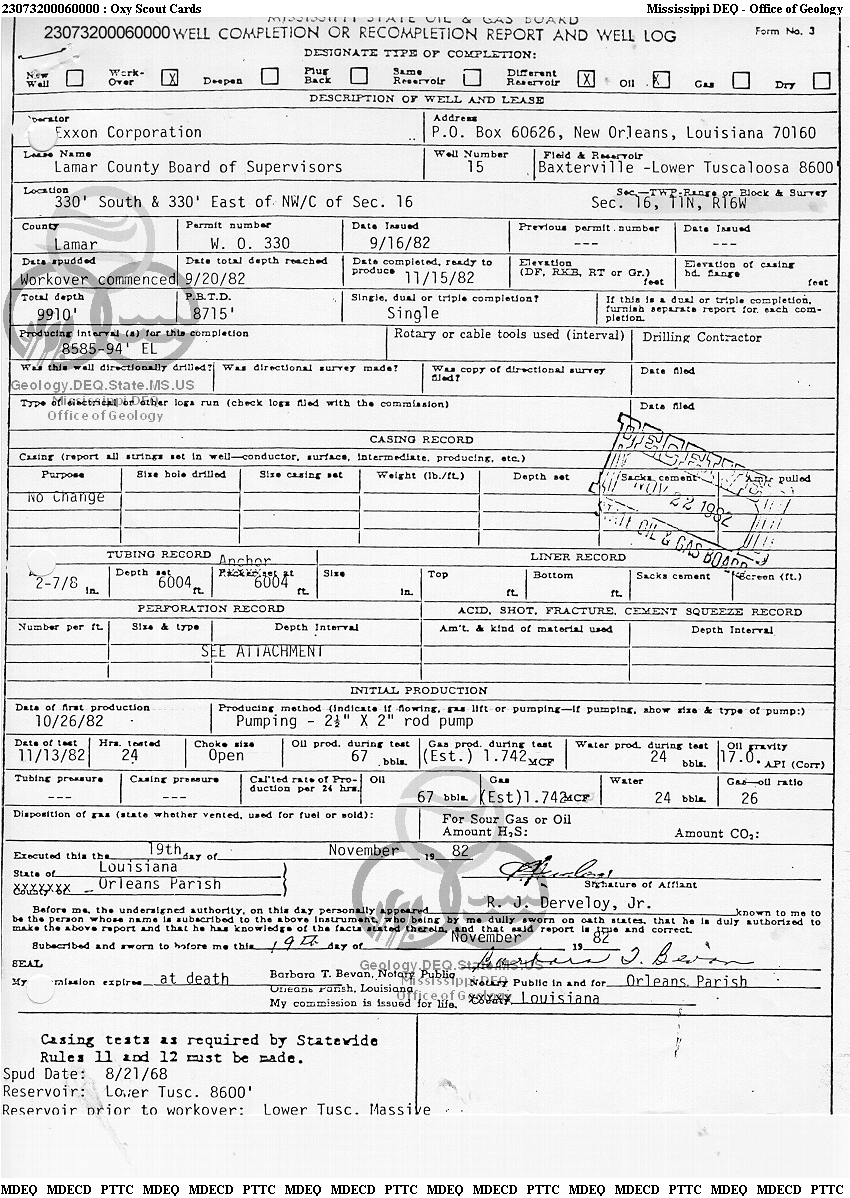 23073200060000 : Oxy Scout Cards Mississippi DEQ - Office of Geology
MISSISSIPPI STATE OIL & GAS BOARD
23073200060000 WELL COMPLETION OR RECOMPLETION REPORT AND WELL LOG Form No. 3
DESIGNATE TYPE OF COMPLETION:
New Well Work-Over X Deepen Plug Back Same Reservoir Different Reservoir X Oil X Gas Dry
DESCRIPTION OF WELL AND LEASE
Operator Address
Exxon Corporation P.O. Box 60626, New Orleans, Louisiana 70160
Lease Name Well Number Field & Reservoir
Lamar County Board of Supervisors 15 Baxterville -Lower Tuscaloosa 8600'
Location Sec.—TWP-Range or Block & Survey
330' South & 330' East of NW/C of Sec. 16 Sec. 16, T1N, R16W
County Permit number Date Issued Previous permit number Date Issued
Lamar W. O. 330 9/16/82 --- ---
Date spudded Date total depth reached Date completed, ready to produce Elevation (DF, RKB, RT or Gr.) Elevation of casing hd. flange
Workover commenced 9/20/82 11/15/82 feet feet
Total depth P.B.T.D. Single, dual or triple completion? If this is a dual or triple completion, furnish separate report for each completion.
9910' 8715' Single
Producing interval (s) for this completion Rotary or cable tools used (interval) Drilling Contractor
8585-94' EL
Was this well directionally drilled? Was directional survey made? Was copy of directional survey filed? Date filed
Geology.DEQ.State.MS.US
Mississippi DEQ
Type of electrical or other logs run (check logs filed with the commission) Date filed
Office of Geology
CASING RECORD
Casing (report all strings set in well—conductor, surface, intermediate, producing, etc.)
Purpose Size hole drilled Size casing set Weight (lb./ft.) Depth set Sacks cement Amt. pulled
No Change
NOV 22 1982
OIL & GAS BOARD
TUBING RECORD Anchor LINER RECORD
Depth set Packer set at Size Top Bottom Sacks cement Screen (ft.)
2-7/8 in. 6004 ft. 6004 ft. in. ft. ft.
PERFORATION RECORD ACID, SHOT, FRACTURE, CEMENT SQUEEZE RECORD
Number per ft. Size & type Depth Interval Am't. & kind of material used Depth Interval
SEE ATTACHMENT
INITIAL PRODUCTION
Date of first production Producing method (indicate if flowing, gas lift or pumping—if pumping, show size & type of pump:)
10/26/82 Pumping - 2½" X 2" rod pump
Date of test Hrs. tested Choke size Oil prod. during test Gas prod. during test Water prod. during test Oil gravity
11/13/82 24 Open 67 bbls. (Est.) 1.742 MCF 24 bbls. 17.0 ° API (Corr)
Tubing pressure Casing pressure Cal'ted rate of Production per 24 hrs. Oil Gas Water Gas—oil ratio
--- --- 67 bbls. (Est)1.742 MCF 24 bbls. 26
Disposition of gas (state whether vented, used for fuel or sold): For Sour Gas or Oil
Amount H2S: Amount CO2:
Executed this the 19th day of November 19 82
State of Louisiana
County of Orleans Parish Signature of Affiant
Before me, the undersigned authority, on this day personally appeared R. J. Derveloy, Jr. known to me to
be the person whose name is subscribed to the above instrument, who being by me dully sworn on oath states, that he is duly authorized to
make the above report and that he has knowledge of the facts stated therein, and that said report is true and correct.
Subscribed and sworn to before me this 19th day of November 19 82
Barbara T. Bevan
Geology.DEQ.State.MS.US
SEAL
My commission expires at death Barbara T. Bevan, Notary Public Notary Public in and for Orleans Parish
Mississippi DEQ
Orleans Parish, Louisiana
Office of Geology
My commission is issued for life. County Louisiana
Casing tests as required by Statewide
Rules 11 and 12 must be made.
Spud Date: 8/21/68
Reservoir: Lower Tusc. 8600'
Reservoir prior to workover: Lower Tusc. Massive
MDEQ MDECD PTTC MDEQ MDECD PTTC MDEQ MDECD PTTC MDEQ MDECD PTTC MDEQ MDECD PTTC MDEQ MDECD PTTC